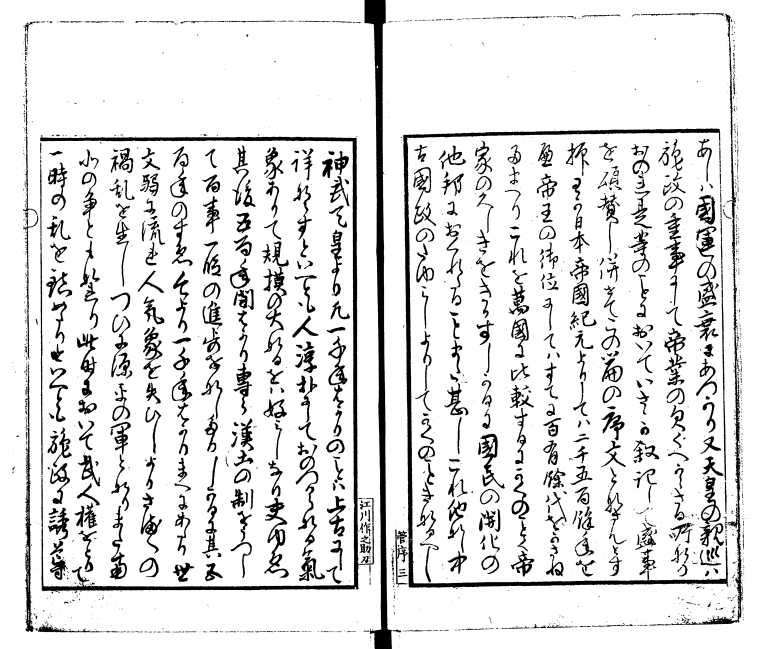 あしハ國運の盛衰にあつかり又天皇の親巡ハ
施政の重事にて帝業の欠くへからさる所なり
おのれ是等のことにおいていさゝか叙記して盛事
を頌賛し併せてこの篇の序文となさんとす
抑わか日本帝國紀元よりしてハ二千五百餘年を
歴帝王の御位にしてハすてに百有餘代をかさね
たまへりこれを萬國に比較するにかくのことく帝
家の久しきをきかすしかるに國民の開化の
他邦におくれたることまた甚しこれ他なし中
古國政のさたしよりしてかくのときなるへし
神武天皇より九一千年はかりのことハ上古にして
詳ならすといへとも人淳朴にしておのつから氣
象ありて規摸の大なるをハ好しなり史伝
其後五百年間はかり專ら漢土の制をうつし
て百事一般の進歩をなしたりしかるに其五
百年のすゑより一千年はかりまへにあたり世
文弱に流れ人氣象を失ひしよりさま〳〵の
禍乱を生しつひに源平の軍となりまた南
北の争ともなれり此時において武人權をとりて
一時の乱を鎮めたりといへとも施政は
江川作之助刀
菅序 三